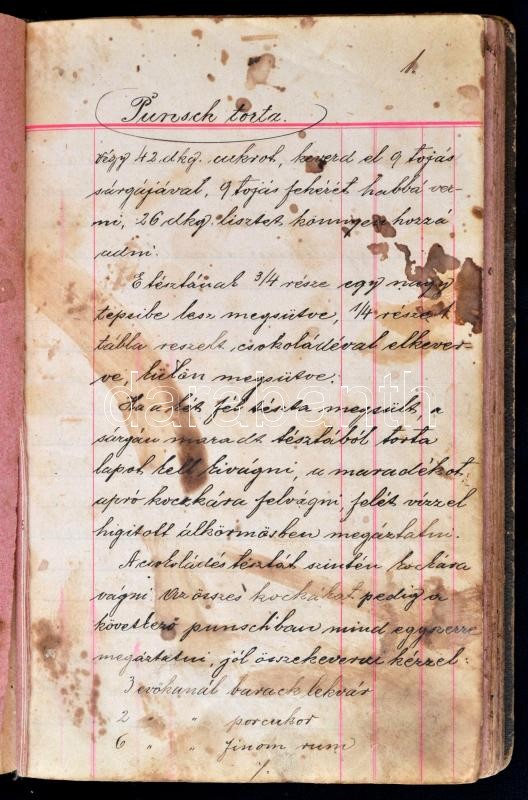 1.
Punsch torta.
Végy 42 dkg. cukrot, keverd el 9 tojás
sárgájával, 9 tojás fehérét habbá ver-
ni, 26 dkg. lisztet könnyen hozzá
adni.
E tésztának 3/4 része egy nagy
tepsibe lesz megsütve, 1/4 részét
tábla reszelt csokoládéval elkever-
ve, külön megsütve.
Ha a két féle tészta megsült, a
sárgán maradt tésztából torta
lapot kell kivágni, a maradékot
apró kockára felvágni, felét vízzel
higitott álkörmösben megáztatni.
A csokoládés tésztát szintén kockára
vágni. Az összes kockákat pedig a
következő punschban mind egyszerre
megáztatni jól összekeverve kézzel:
3 evőkanál baracklekvár
2 " " porcukor
6 " " finom rum
./.
darabanth